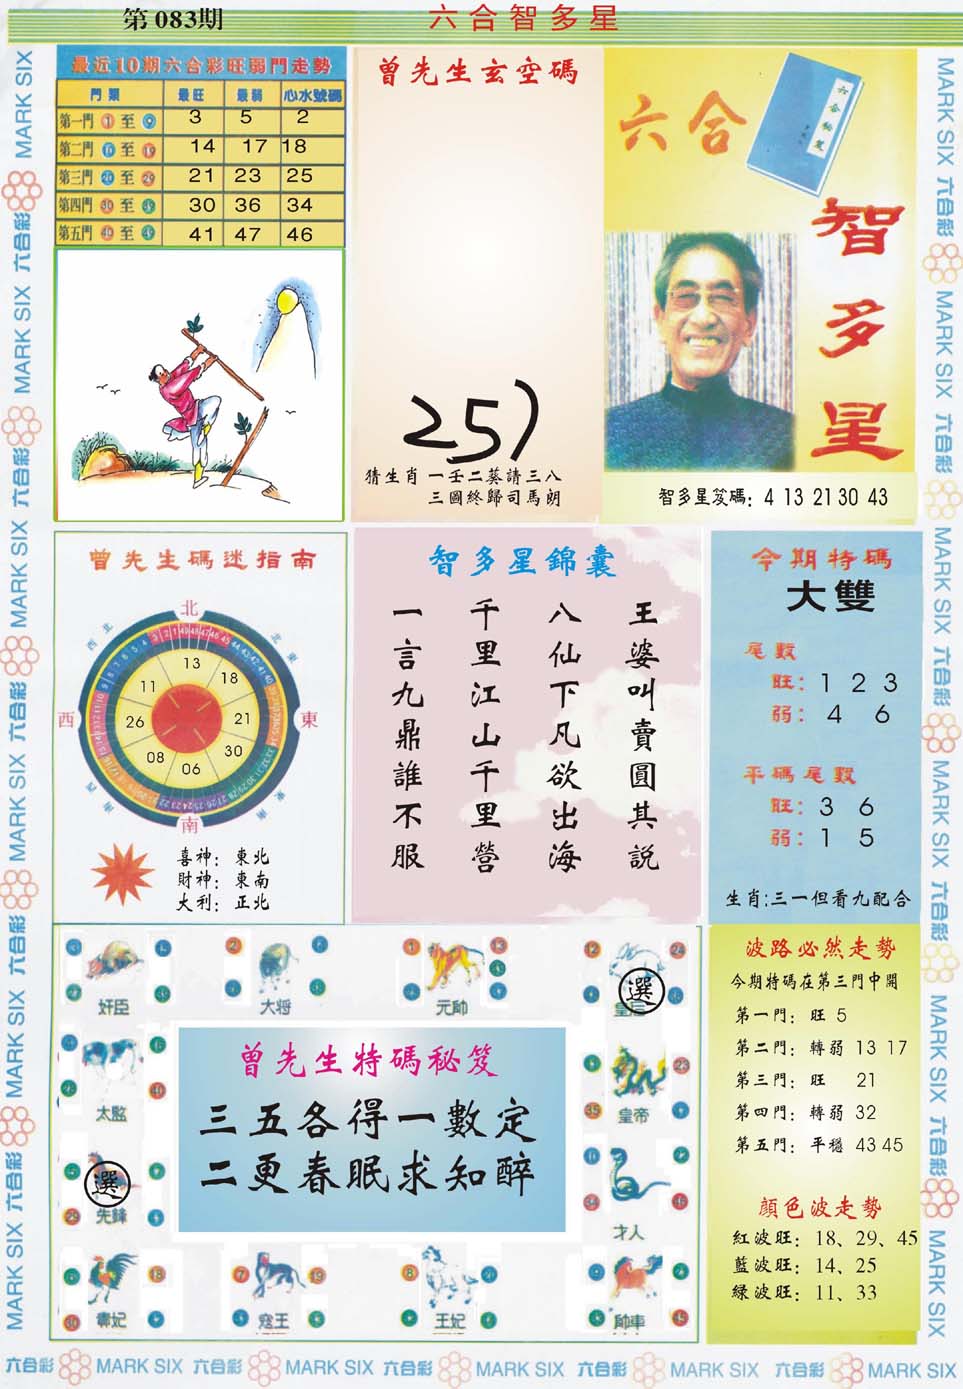 第 083期
六合智多星
最近10期六合彩旺弱門走勢
門類 最旺 最弱 心水號碼
第一門 1 至 9 3 5 2
第二門 10 至 19 14 17 18
第三門 20 至 29 21 23 25
第四門 30 至 39 30 36 34
第五門 40 至 49 41 47 46
曾先生玄空碼
猜生肖 一壬二葵請三八
三國終歸司馬朗
六合
六合秘笈
智多星
智多星笈碼: 4 13 21 30 43
曾先生碼迷指南
北
西北
東北
西
東
西南
東南
南
13
18
21
30
06
08
26
11
喜神: 東北
財神: 東南
大利: 正北
智多星錦囊
王婆叫賣圓其說
八仙下凡欲出海
千里江山千里營
一言九鼎誰不服
今期特碼
大雙
尾數
旺: 1 2 3
弱: 4 6
平碼尾數
旺: 3 6
弱: 1 5
生肖:三一但看九配合
奸臣
大将
元帥
選
太監
皇帝
選
先鋒
才人
寇王
王妃
帥車
曾先生特碼秘笈
三五各得一數定
二更春眠求知醉
波路必然走勢
今期特碼在第三門中開
第一門: 旺 5
第二門: 轉弱 13 17
第三門: 旺 21
第四門: 轉弱 32
第五門: 平穩 43 45
顔色波走勢
紅波旺: 18、29、45
藍波旺: 14、25
綠波旺: 11、33
MARK SIX 六合彩 MARK SIX 六合彩 MARK SIX 六合彩 MARK SIX 六合彩 MARK SIX 六合彩 MARK SIX
MARK SIX 六合彩 MARK SIX 六合彩 MARK SIX 六合彩 MARK SIX 六合彩 MARK SIX 六合彩 MARK SIX
六合彩 MARK SIX 六合彩 MARK SIX 六合彩 MARK SIX 六合彩 MARK SIX 六合彩 MARK SIX